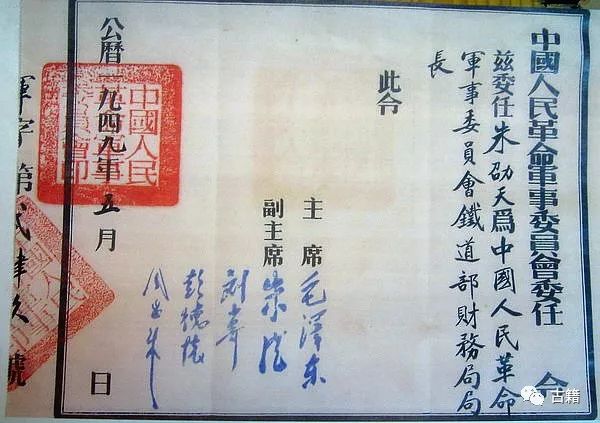 中國人民革命軍事委員會委任 令
茲委任朱劭天爲中國人民革命
軍事委員會鐵道部財務局局
長
此令
主席 毛澤东
副主席 朱德
刘少奇
彭德怀
周恩来
公曆一九四九年五月 日
中國人民革命軍事委員會印
軍字第弍肆 號
古籍